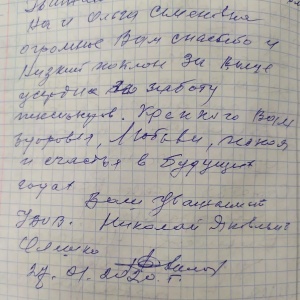 на и Ольга Семеновна
огромное Вам спасибо и
Низкий поклон За Ваше
усердие заботу
Крепкого Вам
здоровья, Любви,
и счастья в Будущих
годах
Вам Уважаемый
Николай Яковлевич
27. 01. 2020. г.